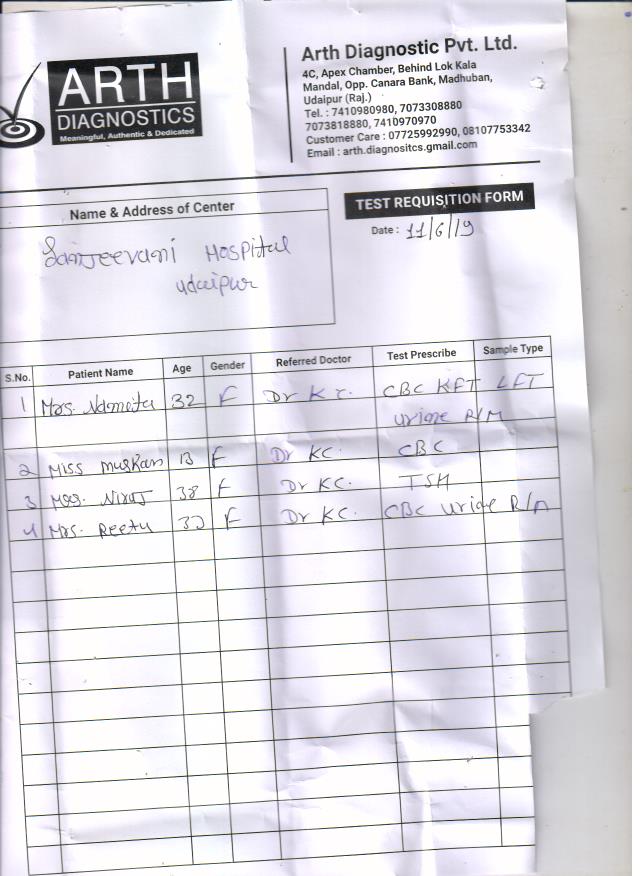 ARTH
DIAGNOSTICS
Meaningful, Authentic & Dedicated
Arth Diagnostic Pvt. Ltd.
4C, Apex Chamber, Behind Lok Kala
Mandal, Opp. Canara Bank, Madhuban,
Udaipur (Raj.)
Tel. : 7410980980, 7073308880
7073818880, 7410970970
Customer Care : 07725992990, 08107753342
Email : arth.diagnositcs.gmail.com
Name & Address of Center
Sanjeevani Hospital
Udaipur
TEST REQUISITION FORM
Date : 11/6/19
S.No. Patient Name Age Gender Referred Doctor Test Prescribe Sample Type
1 Mrs. Namita 32 F Dr KC. CBC KFT LFT
Urine R/M
2 Miss Muskan 13 F Dr KC. CBC
3 Mrs. 38 F Dr KC. TSH
4 Mrs. Reetu F Dr KC. CBC Urine R/M